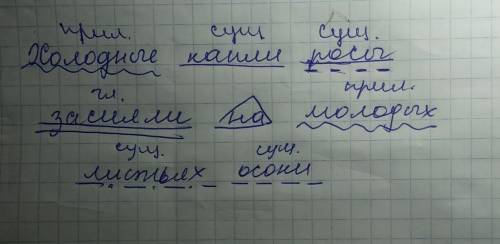 прил. сущ сущ.
Холодные капли росы
гл. прил.
засияли на молодых
сущ. сущ.
листьях осоки